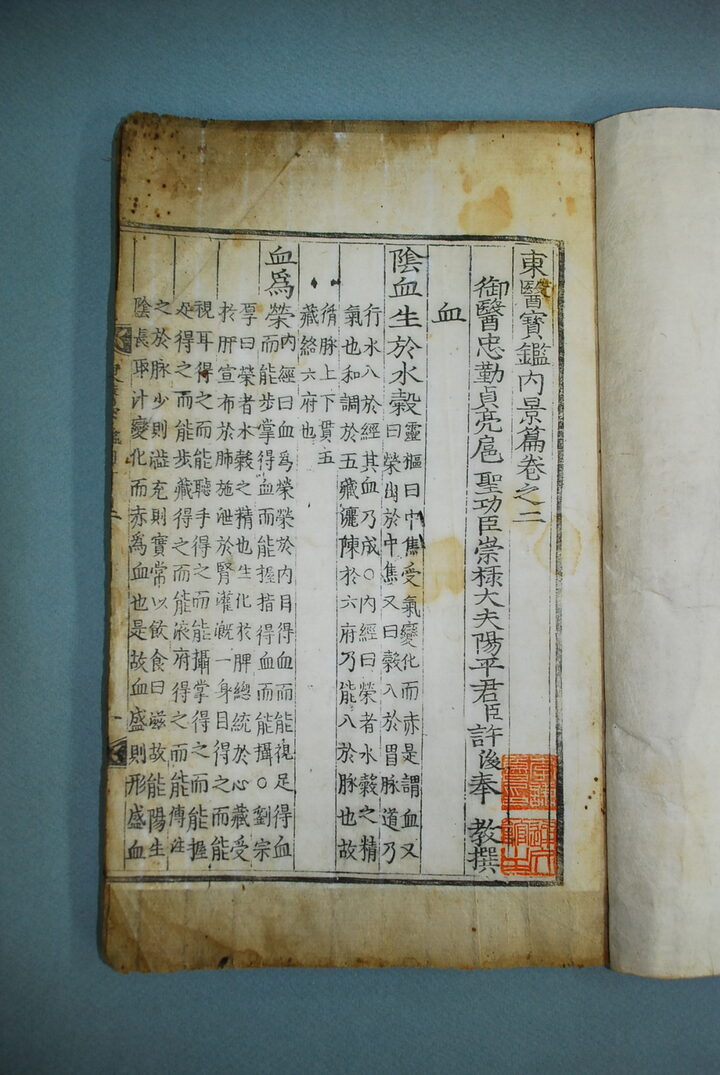 東醫寶鑑內景篇卷之二
御醫忠勤貞亮扈 聖功臣崇祿大夫陽平君臣許浚奉 教撰
血
陰血生於水穀 靈樞曰中焦受氣變化而赤是謂血又
曰榮出於中焦又曰穀入於胃脉道乃
行水入於經其血乃成○內經曰榮者水穀之精
氣也和調於五藏灑陳於六府乃能入於脉也故
循脉上下貫五
藏絡六府也
血爲榮 內經曰血爲榮榮於內目得血而能視足得血
而能步掌得血而能握指得血而能攝○劉宗
厚曰榮者水穀之精也生化於脾總統於心藏受
於肝宣布於肺施泄於腎灌漑一身目得之而能
視耳得之而能聽手得之而能攝掌得之而能握
足得之而能步藏得之而能液府得之而能傳注
之於脉少則澁充則實常以飮食日滋故能陽生
陰長取汁變化而赤爲血也是故血盛則形盛血